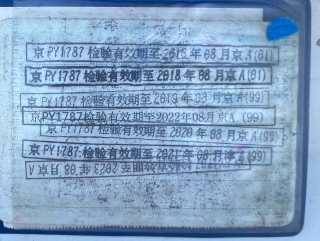 京PY1787检验有效期至2016年08月京A(01)
京PY1787检验有效期至2018年08月京A(01)
京PY1787检验有效期至2019年08月京A(99)
京PY1787检验有效期至2022年08月京A(99)
京PY1787检验有效期至2020年08月京A(99)
京PY1787检验有效期至2021年08月京A(99)
检验有效期至2023年08月京A